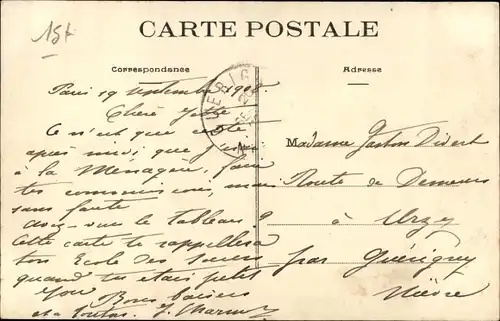 15f
CARTE POSTALE
Correspondance
Adresse
Paris 19 septembre 1908
Chère
Ce n'est que cette
après midi, que
à la Ménagère, faire
tes commissions,
sans faute
avez-vous le tableau?
Cette carte te rappellera
ton Ecole des Soeurs
quand tu étais petit
Bons baisers
et à toutes.
GUERIG
20
Madame Gaston Dident
Route de
à Urzy
par Guérigny
Nièvre